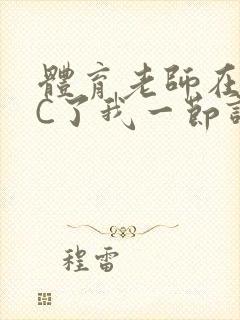 體育老師在
C了我一節
程雷